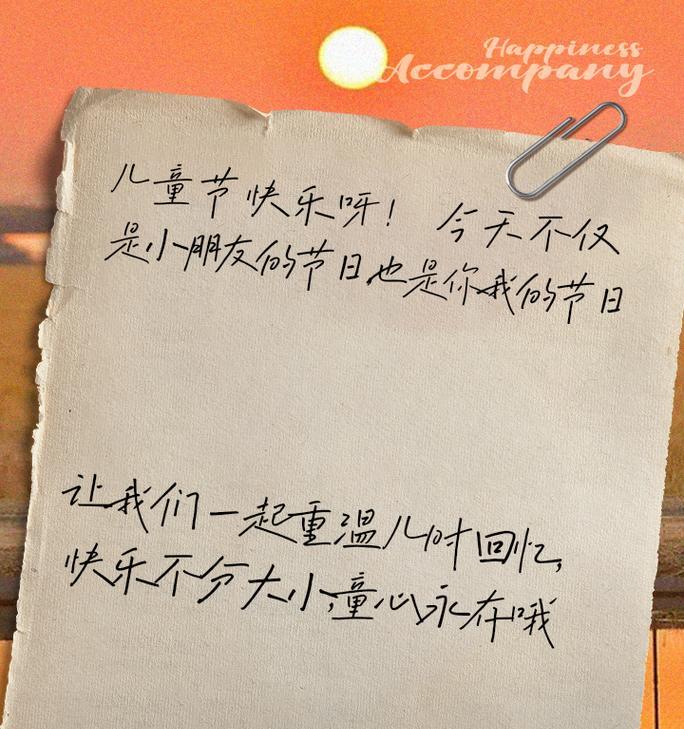 Happiness
Accompany
儿童节快乐呀！ 今天不仅
是小朋友的节日也是你我的节日
让我们一起重温儿时回忆，
快乐不分大小，童心永存哦